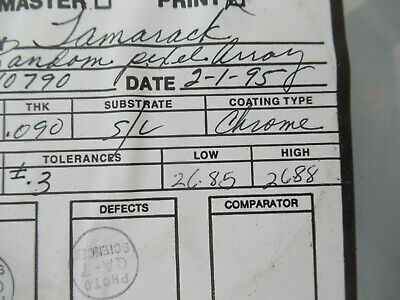 MASTER PRINT
Tamarack
andom pixel Array
0790 DATE 2-1-95
THK SUBSTRATE COATING TYPE
.090 S/L Chrome
TOLERANCES LOW HIGH
±.3 26.85 2688
DEFECTS COMPARATOR
PHOTO SCIENCES QA-7